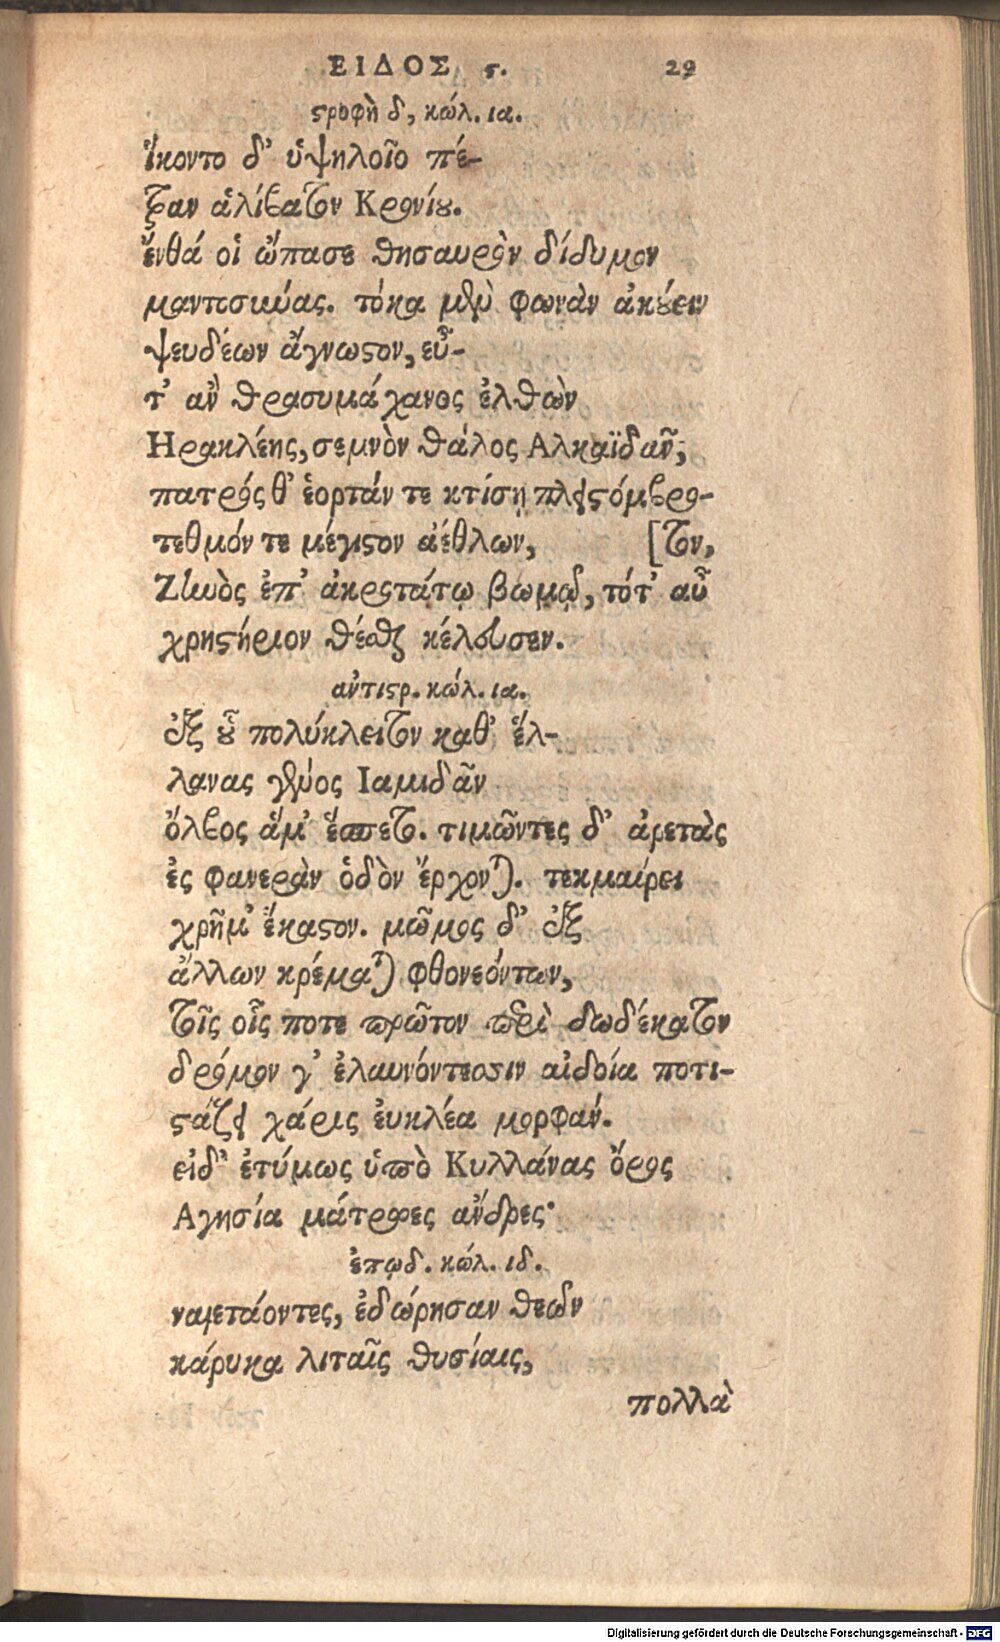 ΕΙΔΟΣ ϛ. 29
ϛροφὴ δ, κώλ. ια.
ἵκοντο δ' ὑψηλοῖο πέ-
τραν ἀλίβατον Κρονίου.
ἔνθά οἱ ὤπασε θησαυρὸν δίδυμον
μαντοσύνας. τόκα μὲν φωνὰν ἀκούειν
ψευδέων ἄγνωστον, εὖ-
τ' ἂν θρασυμάχανος ἐλθὼν
Ηρακλέης, σεμνὸν θάλος Αλκαϊδᾶν,
πατρός θ' ἑορτάν τε κτίσῃ πλειστόμβρο-
τεθμόν τε μέγιστον ἀέθλων, [τον,
Ζηνὸς ἐπ' ἀκροτάτῳ βωμῷ, τότ' αὖ
χρηστήριον θέσθαι κέλευσεν.
ἀντιστρ. κώλ. ια.
ἐξ οὗ πολύκλειτον καθ' ἕλ-
λανας γένος Ιαμιδᾶν
ὄλβος ἅμ' ἕσπετο. τιμῶντες δ' ἀρετὰς
ἐς φανερὰν ὁδὸν ἔρχονται. τεκμαίρει
χρῆμ' ἕκαστον. μῶμος δ' ἐξ
ἄλλων κρέμαται φθονεόντων,
τοῖς οἷς ποτε πρῶτον περὶ δωδέκατον
δρόμον γ' ἐλαυνόντεσσιν αἰδοία ποτι-
στάζει χάρις ἐυκλέα μορφάν.
εἰδ' ἐτύμως ὑπὸ Κυλλάνας ὄρος
Αγησία μάτρωες ἄνδρες·
ἐπῳδ. κώλ. ιδ.
ναιετάοντες, ἐδώρησαν θεῶν
κάρυκα λιταῖς θυσίαις,
πολλὰ
Digitalisierung gefördert durch die Deutsche Forschungsgemeinschaft - DFG